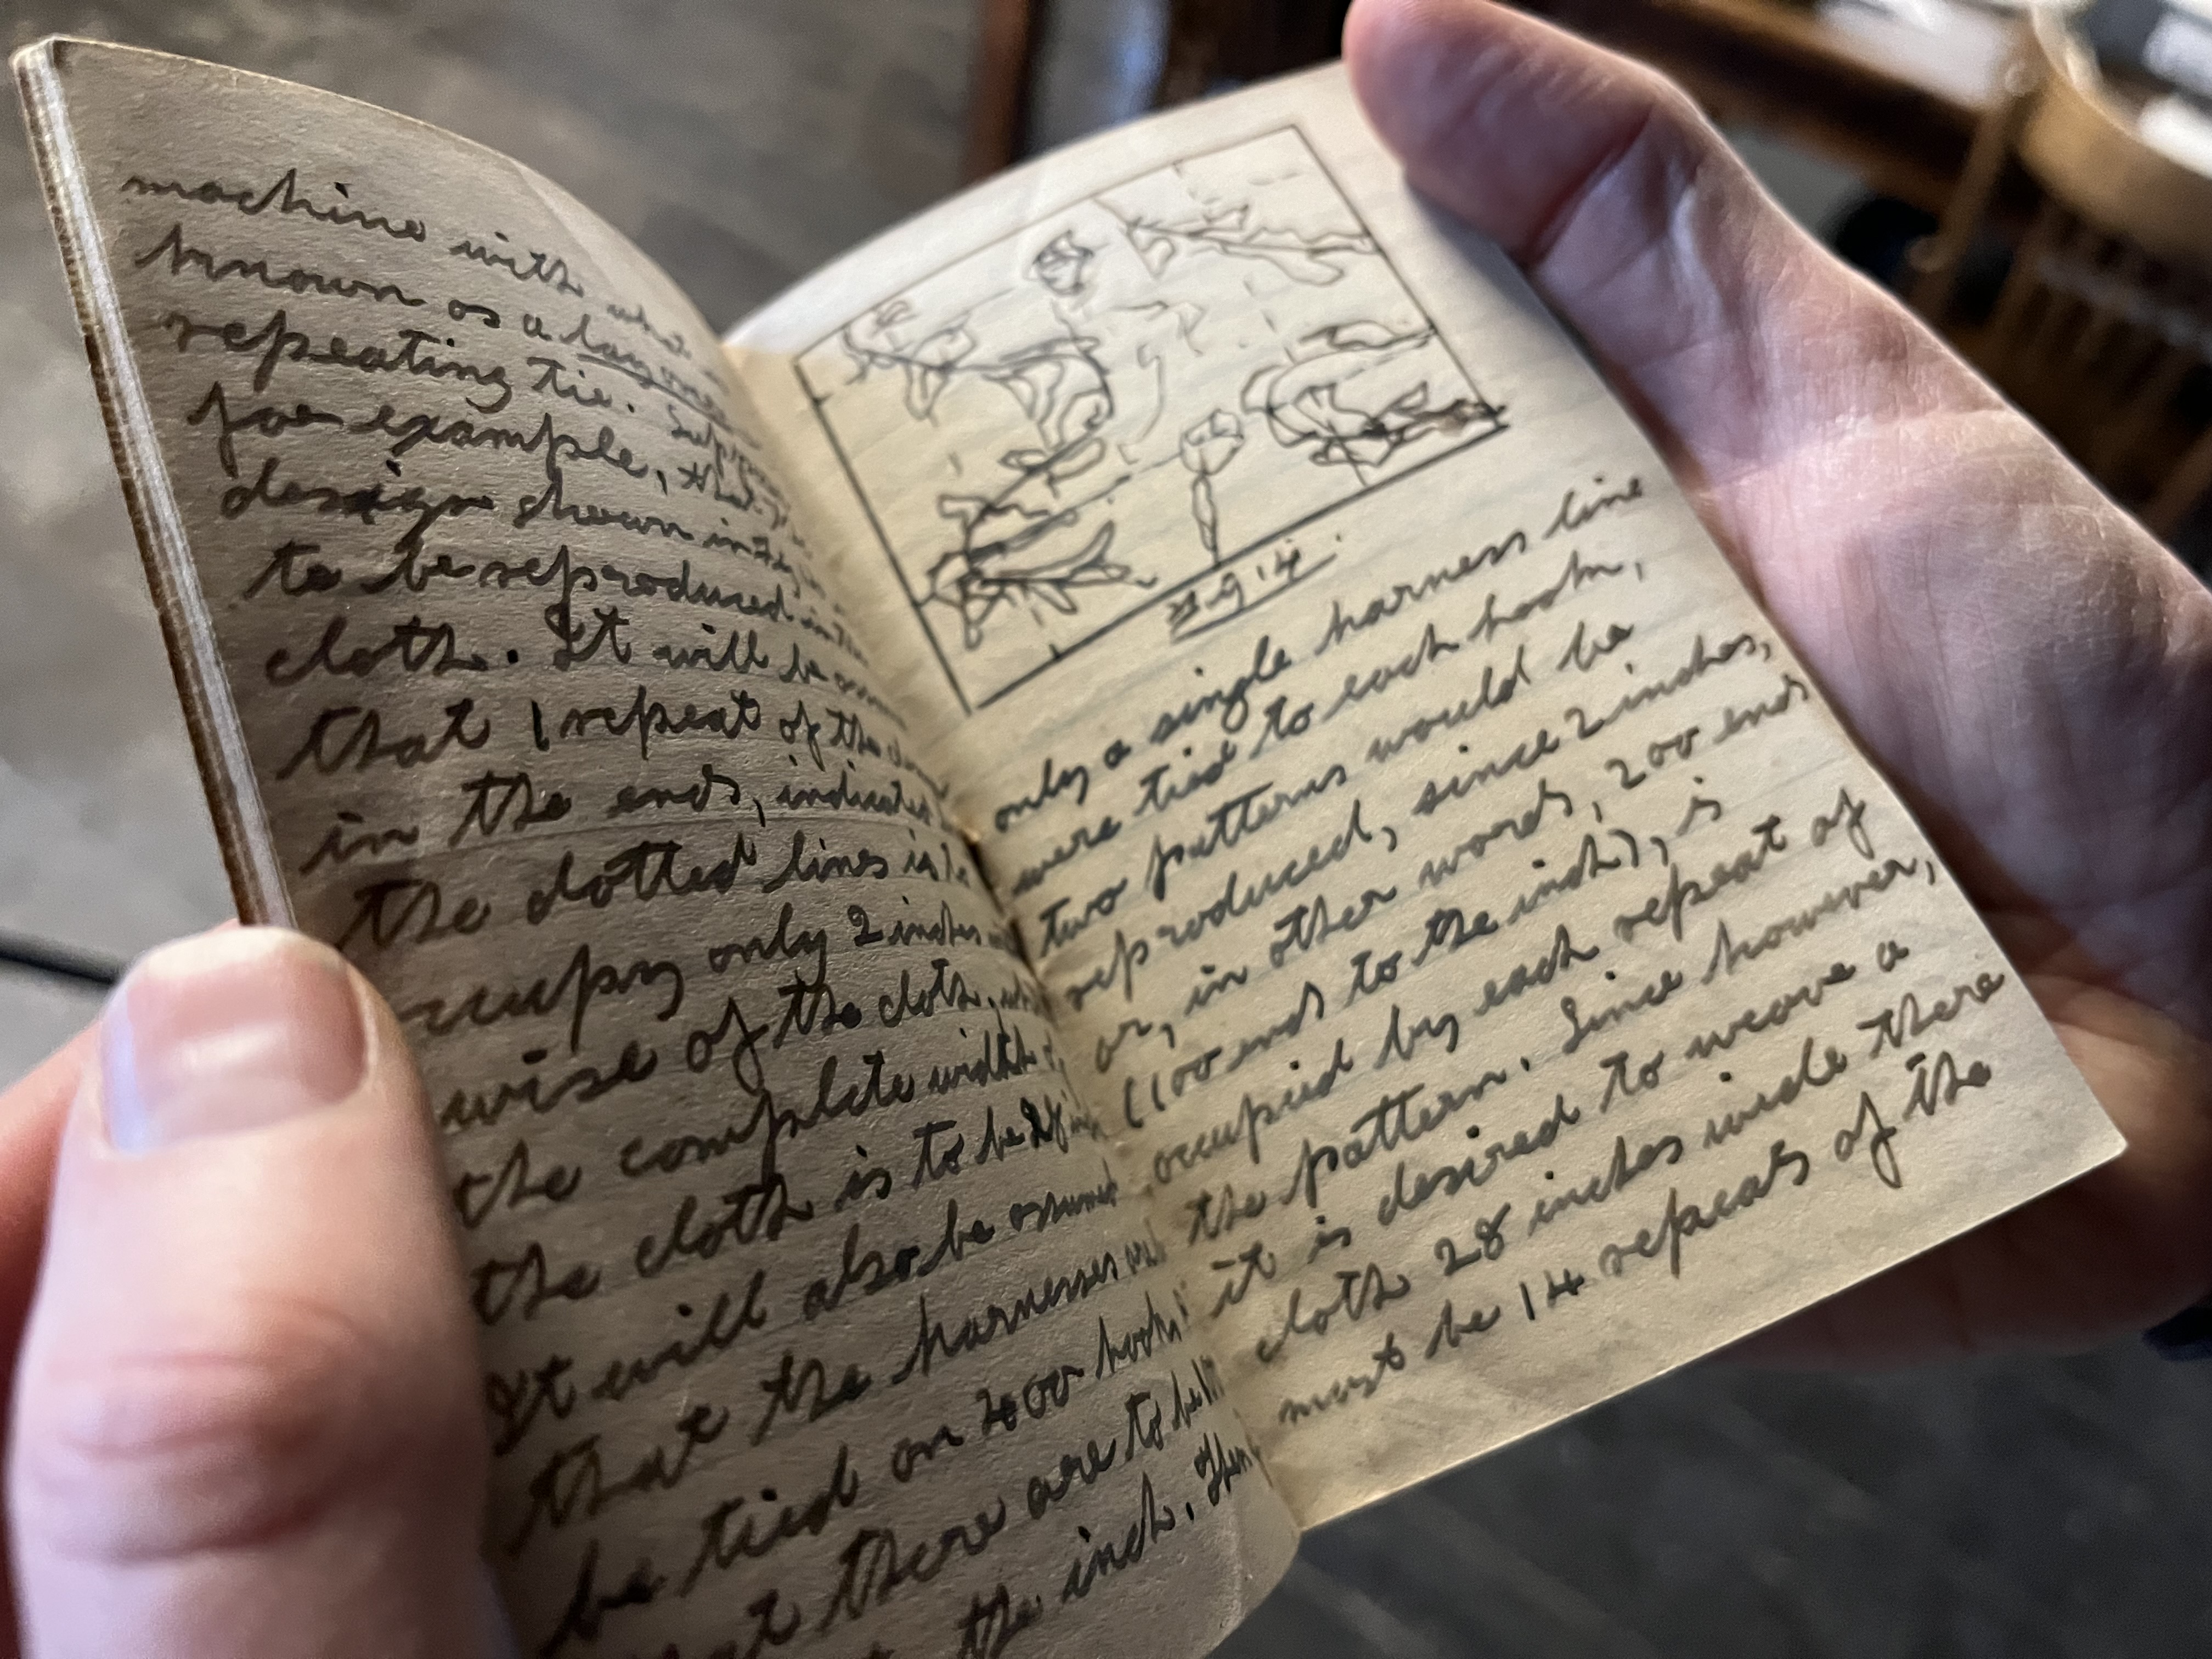 machine with what
known as a lay over
repeating tie. Suppose
for example, that
design shown in the
to be reproduced in the
cloth. It will be
that 1 repeat of the
in the ends, indicated
the dotted lines is to
occupy only 2 inches
wise of the cloth,
the complete width of
the cloth is to be 28
It will also be assumed
that the harnesses
be tied on 400 hooks
that there are to be
the inch. Then
Fig. 14
only a single harness line
were tied to each hook,
two patterns would be
reproduced, since 2 inches,
or, in other words, 200 ends
(100 ends to the inch), is
occupied by each repeat of
the pattern. Since however,
it is desired to weave a
cloth 28 inches wide there
must be 14 repeats of the